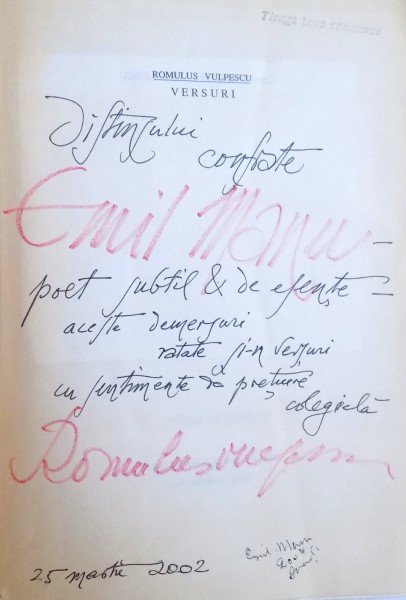 Tirage hors commerce
ROMULUS VULPESCU
VERSURI
Distinsului
confrate
Emil Manu –
poet subtil & de esențe –
aceste demersuri
ratate și-n versuri
cu sentimente de prețuire
colegială
Romulus Vulpescu
25 martie 2002
Emil Manu